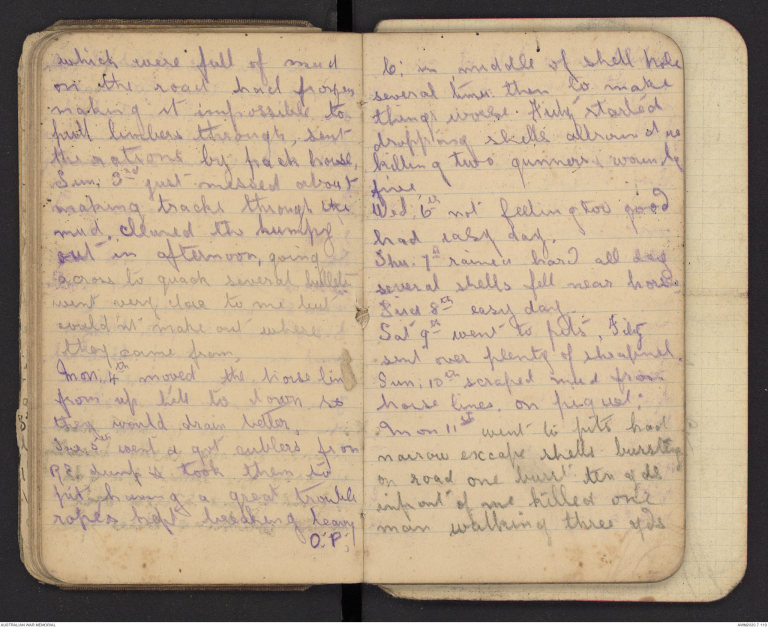 which were full of mud
on the road had frozen
making it impossible to
pull limbers through, sent
the rations by pack horse.
Sun. 3rd just messed about
making tracks through the
mud, cleaned the humpy
out in afternoon, going
across to quack several bullets
went very close to me but
could n't make out where
they came from.
Mon, 4th moved the horse lin
from up hill to down, so
they would drain better,
Tue. 5th went & got from
R.E. dump & took them to
pit, having a great trouble
ropes kept breaking leavg
O.P.,
6; in middle of shell hole
several times then to make
things worse. Fritz started
dropping shells allround us
killing two gunners & woundg
five
Wed, 6th not feeling too good
had easy day.
Thu. 7th rained hard all day
several shells fell near horses
Frid 8th easy day
Sat 9th went to pits, Fritz
sent over plenty of sheapnel.
Sun; 10th scraped mud from
horse lines. on piquet.
Mon 11st went to pits had
narrow excape shells bursting
on road one burst ten yds
infront of me killed one
man walking three yds
AUSTRALIAN WAR MEMORIAL